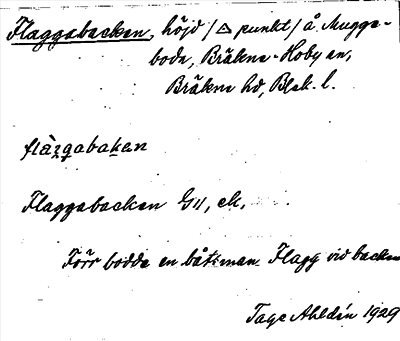 Flaggabacken, höjd /△ punkt/ å Mugga-
boda, Bräkne-Hoby sn,
Bräkne hd, Blek. l.
Flaggabacken G11, ek.
Förr bodde en båtsman Flagg vid backen
Tage Ahldén 1929